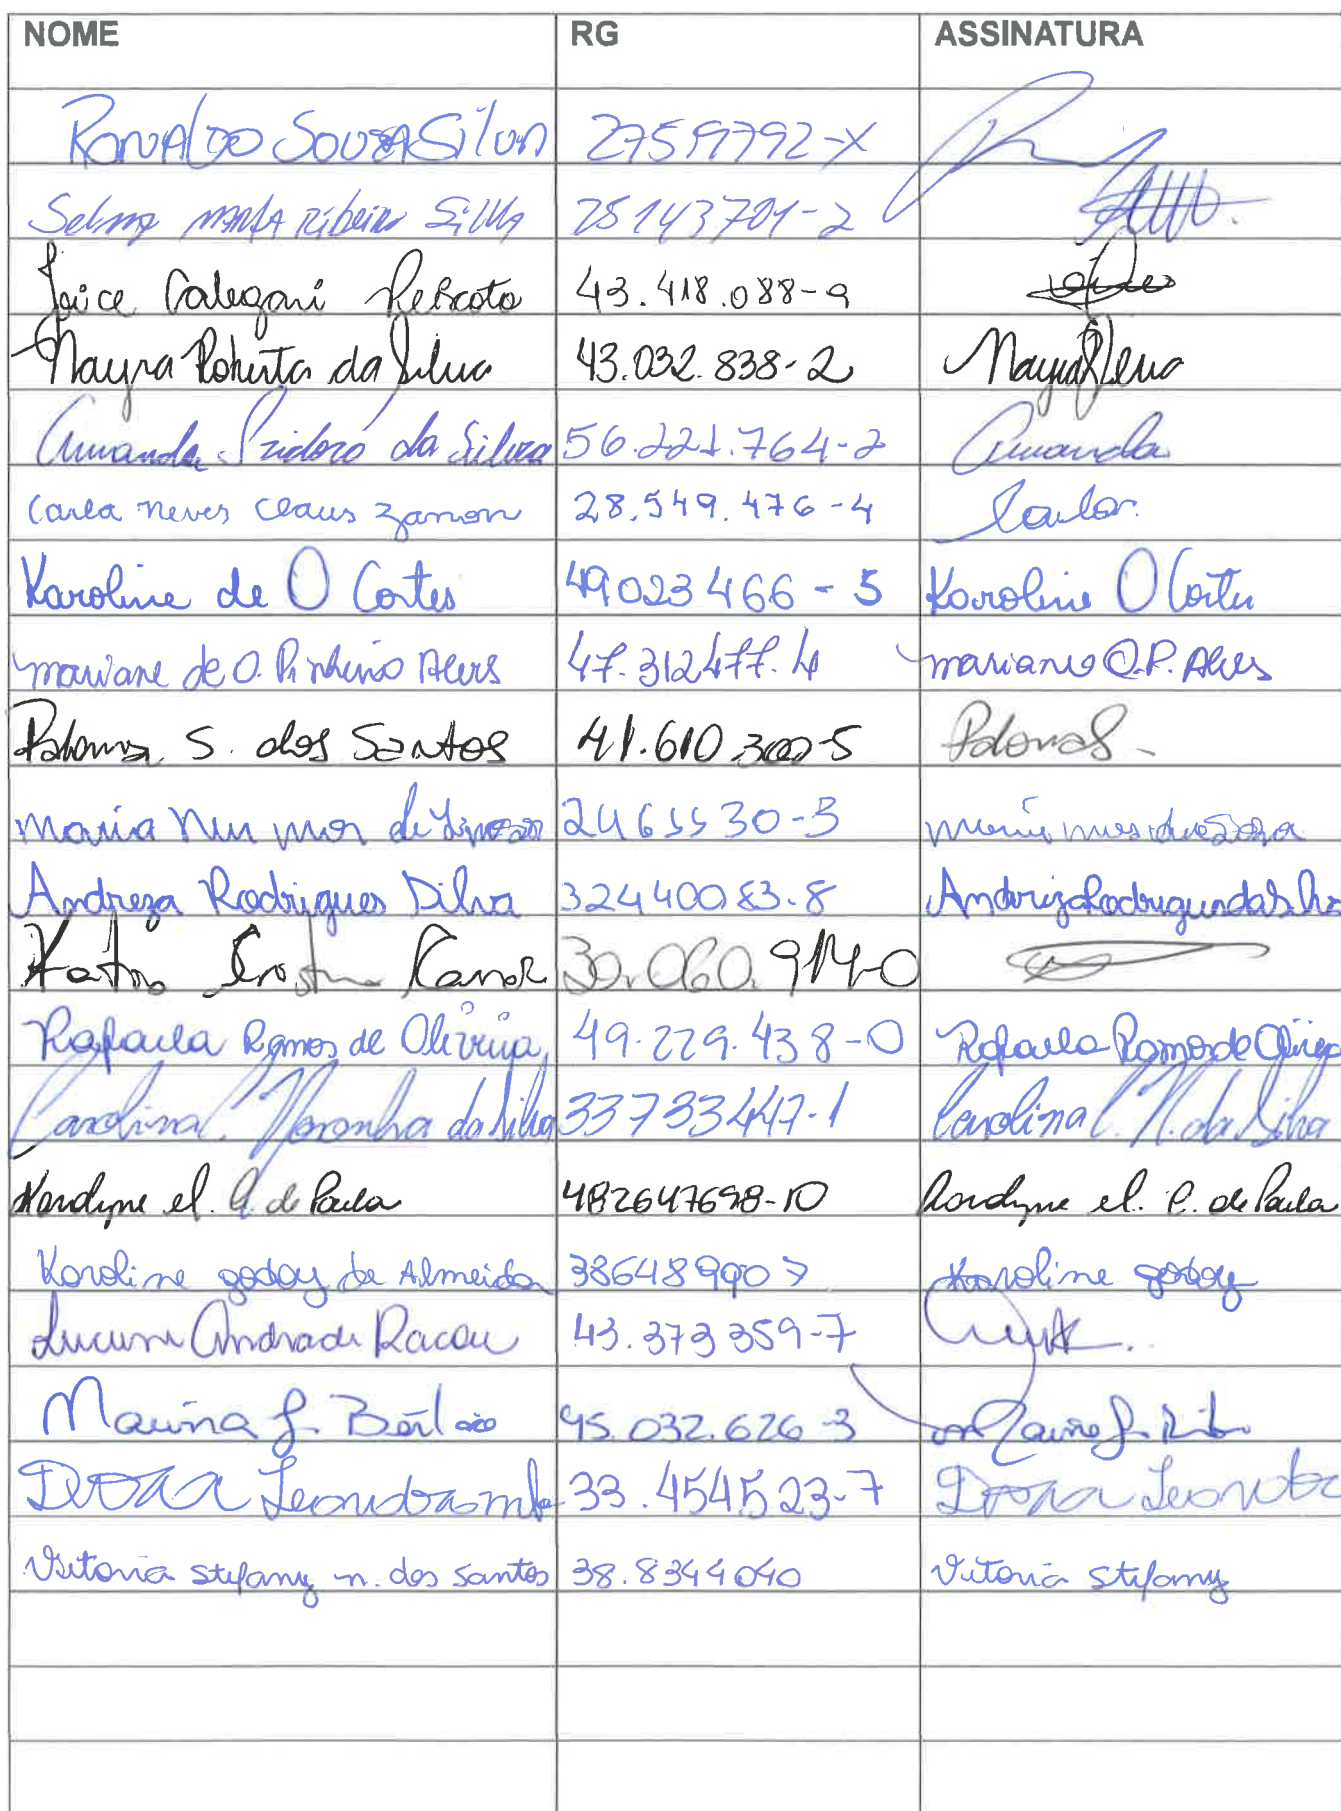 NOME RG ASSINATURA
Ronaldo Souza Silva 27519792-X
Selma Maria Ribeiro Silva 25143701-2
Joice Calegari Peixoto 43.418.088-9
Nayra Roberta da Silva 43.032.838-2 Nayra Silva
Amanda Izidoro da Silva 56.221.764-2 Amanda
Carla Neves Claus Zanon 28.549.476-4 Carla
Karoline de O Cortes 49023466-5 Karoline O Cortes
Mariane de O. Pinheiro Alves 47.312477.4 Mariane O.P. Alves
Paloma S. dos Santos 41.610.300-5 Paloma S.
Maria de 2465530-5
Andreza Rodrigues Silva 32440083-8 Andreza Rodrigues da Silva
Katia 30.060.914-0
Rafaela Ramos de Oliveira 49.229.438-0 Rafaela Ramos de Oliveira
Carolina C. Noronha da Silva 33733447-1 Carolina C. N. da Silva
de Paula 482647698-10 de Paula
Karoline godoy de Almeida 386489907 Karoline godoy
Andrade 43.373359-7
Marina 45.032.626-3
33.454523-7
Vitoria Stefany n. dos Santos 38.8344040 Vitoria Stefany